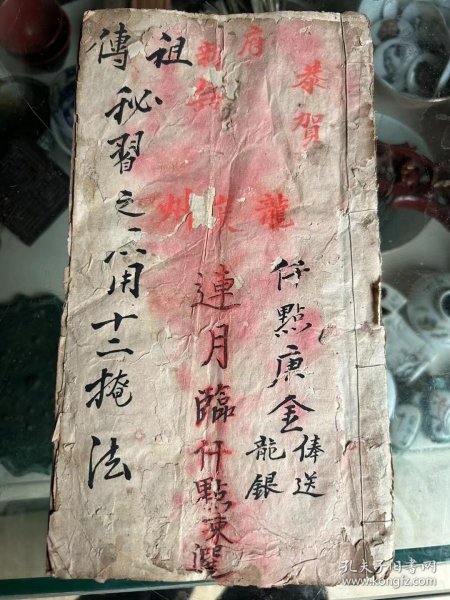 恭賀
府
龍
州
仟點庚金
俸送
龍銀
連月臨仟點東
祖
傳秘習之六用十二掩法
孔夫子旧书网
www.kongfz.com